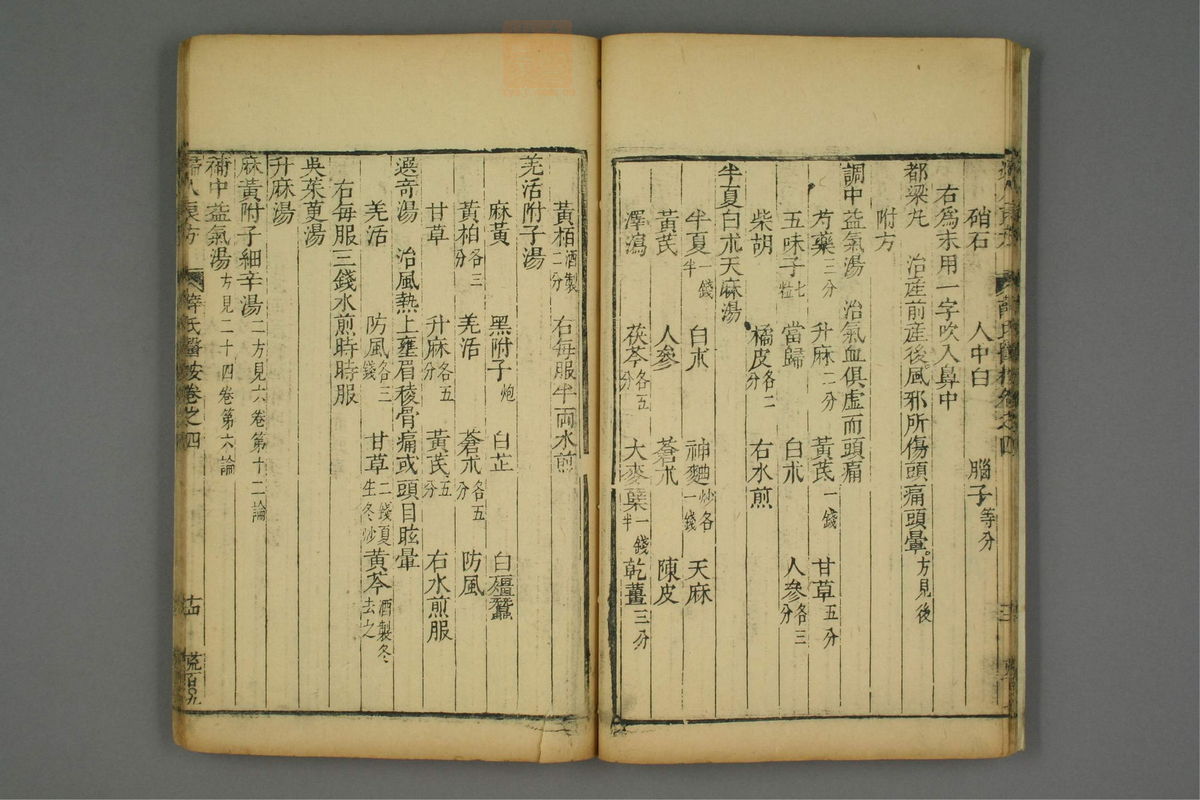 硝石 人中白 腦子等分
右為末用一字吹入鼻中
都梁丸 治產前產後風邪所傷頭痛頭暈。方見後
附方
調中益氣湯 治氣血俱虛而頭痛
芍藥三分 升麻二分 黃芪一錢 甘草五分
五味子七粒 當歸 白朮 人參各三分
柴胡 橘皮各二分 右水煎
半夏白朮天麻湯
半夏一錢半 白朮 神麯炒各一錢 天麻
黃芪 人參 蒼朮 陳皮
澤瀉 茯苓各五分 大麥櫱一錢半 乾薑三分
黃栢酒製二分 右每服半両水煎
羌活附子湯
麻黃 黑附子炮 白芷 白殭蠶
黃栢各三分 羌活 蒼朮各五分 防風
甘草 升麻各五分 黃芪五分 右水煎服
選奇湯 治風熱上壅眉稜骨痛或頭目眩暈
羌活 防風各三錢 甘草二錢夏生冬炒 黃芩酒製冬去之
右每服三錢水煎時時服
吳茱萸湯
升麻湯
麻黃附子細辛湯二方見六卷第十二論
補中益氣湯方見二十四卷第六論
婦人良方 薛氏醫按卷之四 十四